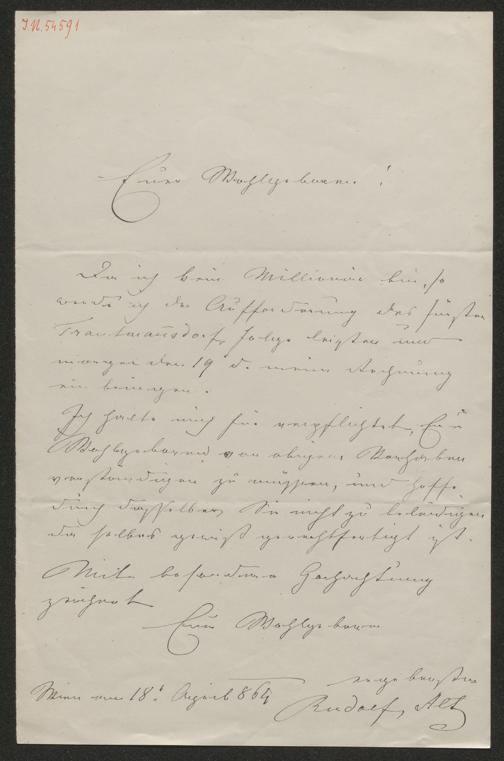 I.N. 54591
Euer Wohlgeboren!
Da ich kein Millionär bin, so
werde ich der Aufforderung des Fürsten
Trautmansdorf Folge leisten und
morgen den 19 d. meine Rechnung
ein bringen.
Ich halte mich für verpflichtet, Euer
Wohlgeboren von obigem Vorhaben
verständigen zu müssen, und hoffe
durch dasselbe Sie nicht zu beleidigen
da selbes gewiß gerechtfertigt ist.
Mit besonderer Hochachtung
zeichnet
Euer Wohlgeboren
ergebenster
Wien am 18t April 864
Rudolf Alt